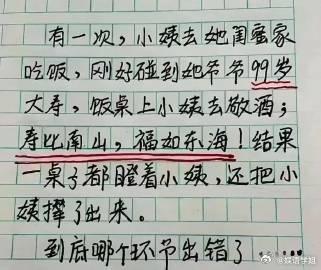 有一次,小姨去她闺蜜家
吃饭,刚好碰到她爷爷99岁
大寿,饭桌上小姨去敬酒;
寿比南山,福如东海!结果
一桌子都瞪着小姨,还把小
姨撵了出来。
到底哪个环节出错了......
@娱语学姐